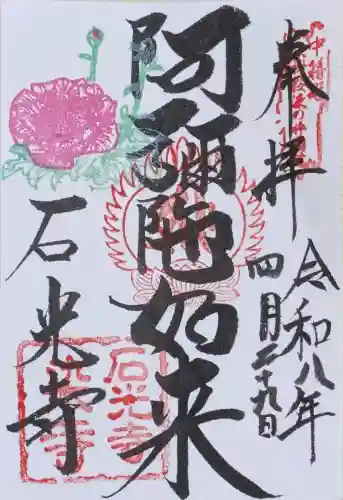 奉拝
令和八年
四月二十九日
阿彌陀如来
石光寺
石光寺